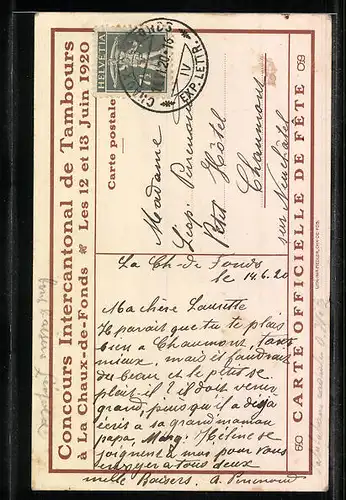 Concours Intercantonal de Tambours
à La Chaux-de-Fonds * Les 12 et 13 Juin 1920
Carte postale
HELVETIA
EXP. LETTR.
IV
Madame
Petit Hôtel
Chaumont
sur Neuchâtel
La Ch-de-Fonds
le 14.6.20
Ma chère Laurette
Il parait que tu te plais
bien à Chaumont, tant
mieux, mais il faudrait
du beau et le petit se
plait-il? il doit venir
grand, puisqu'il a déjà
écris à sa grand maman
papa, Marg. Hélène se
joignent à moi pour vous
envoyer à tous deux
mille baisers. A. Perrenoud
60 CARTE OFFICIELLE DE FÊTE 60